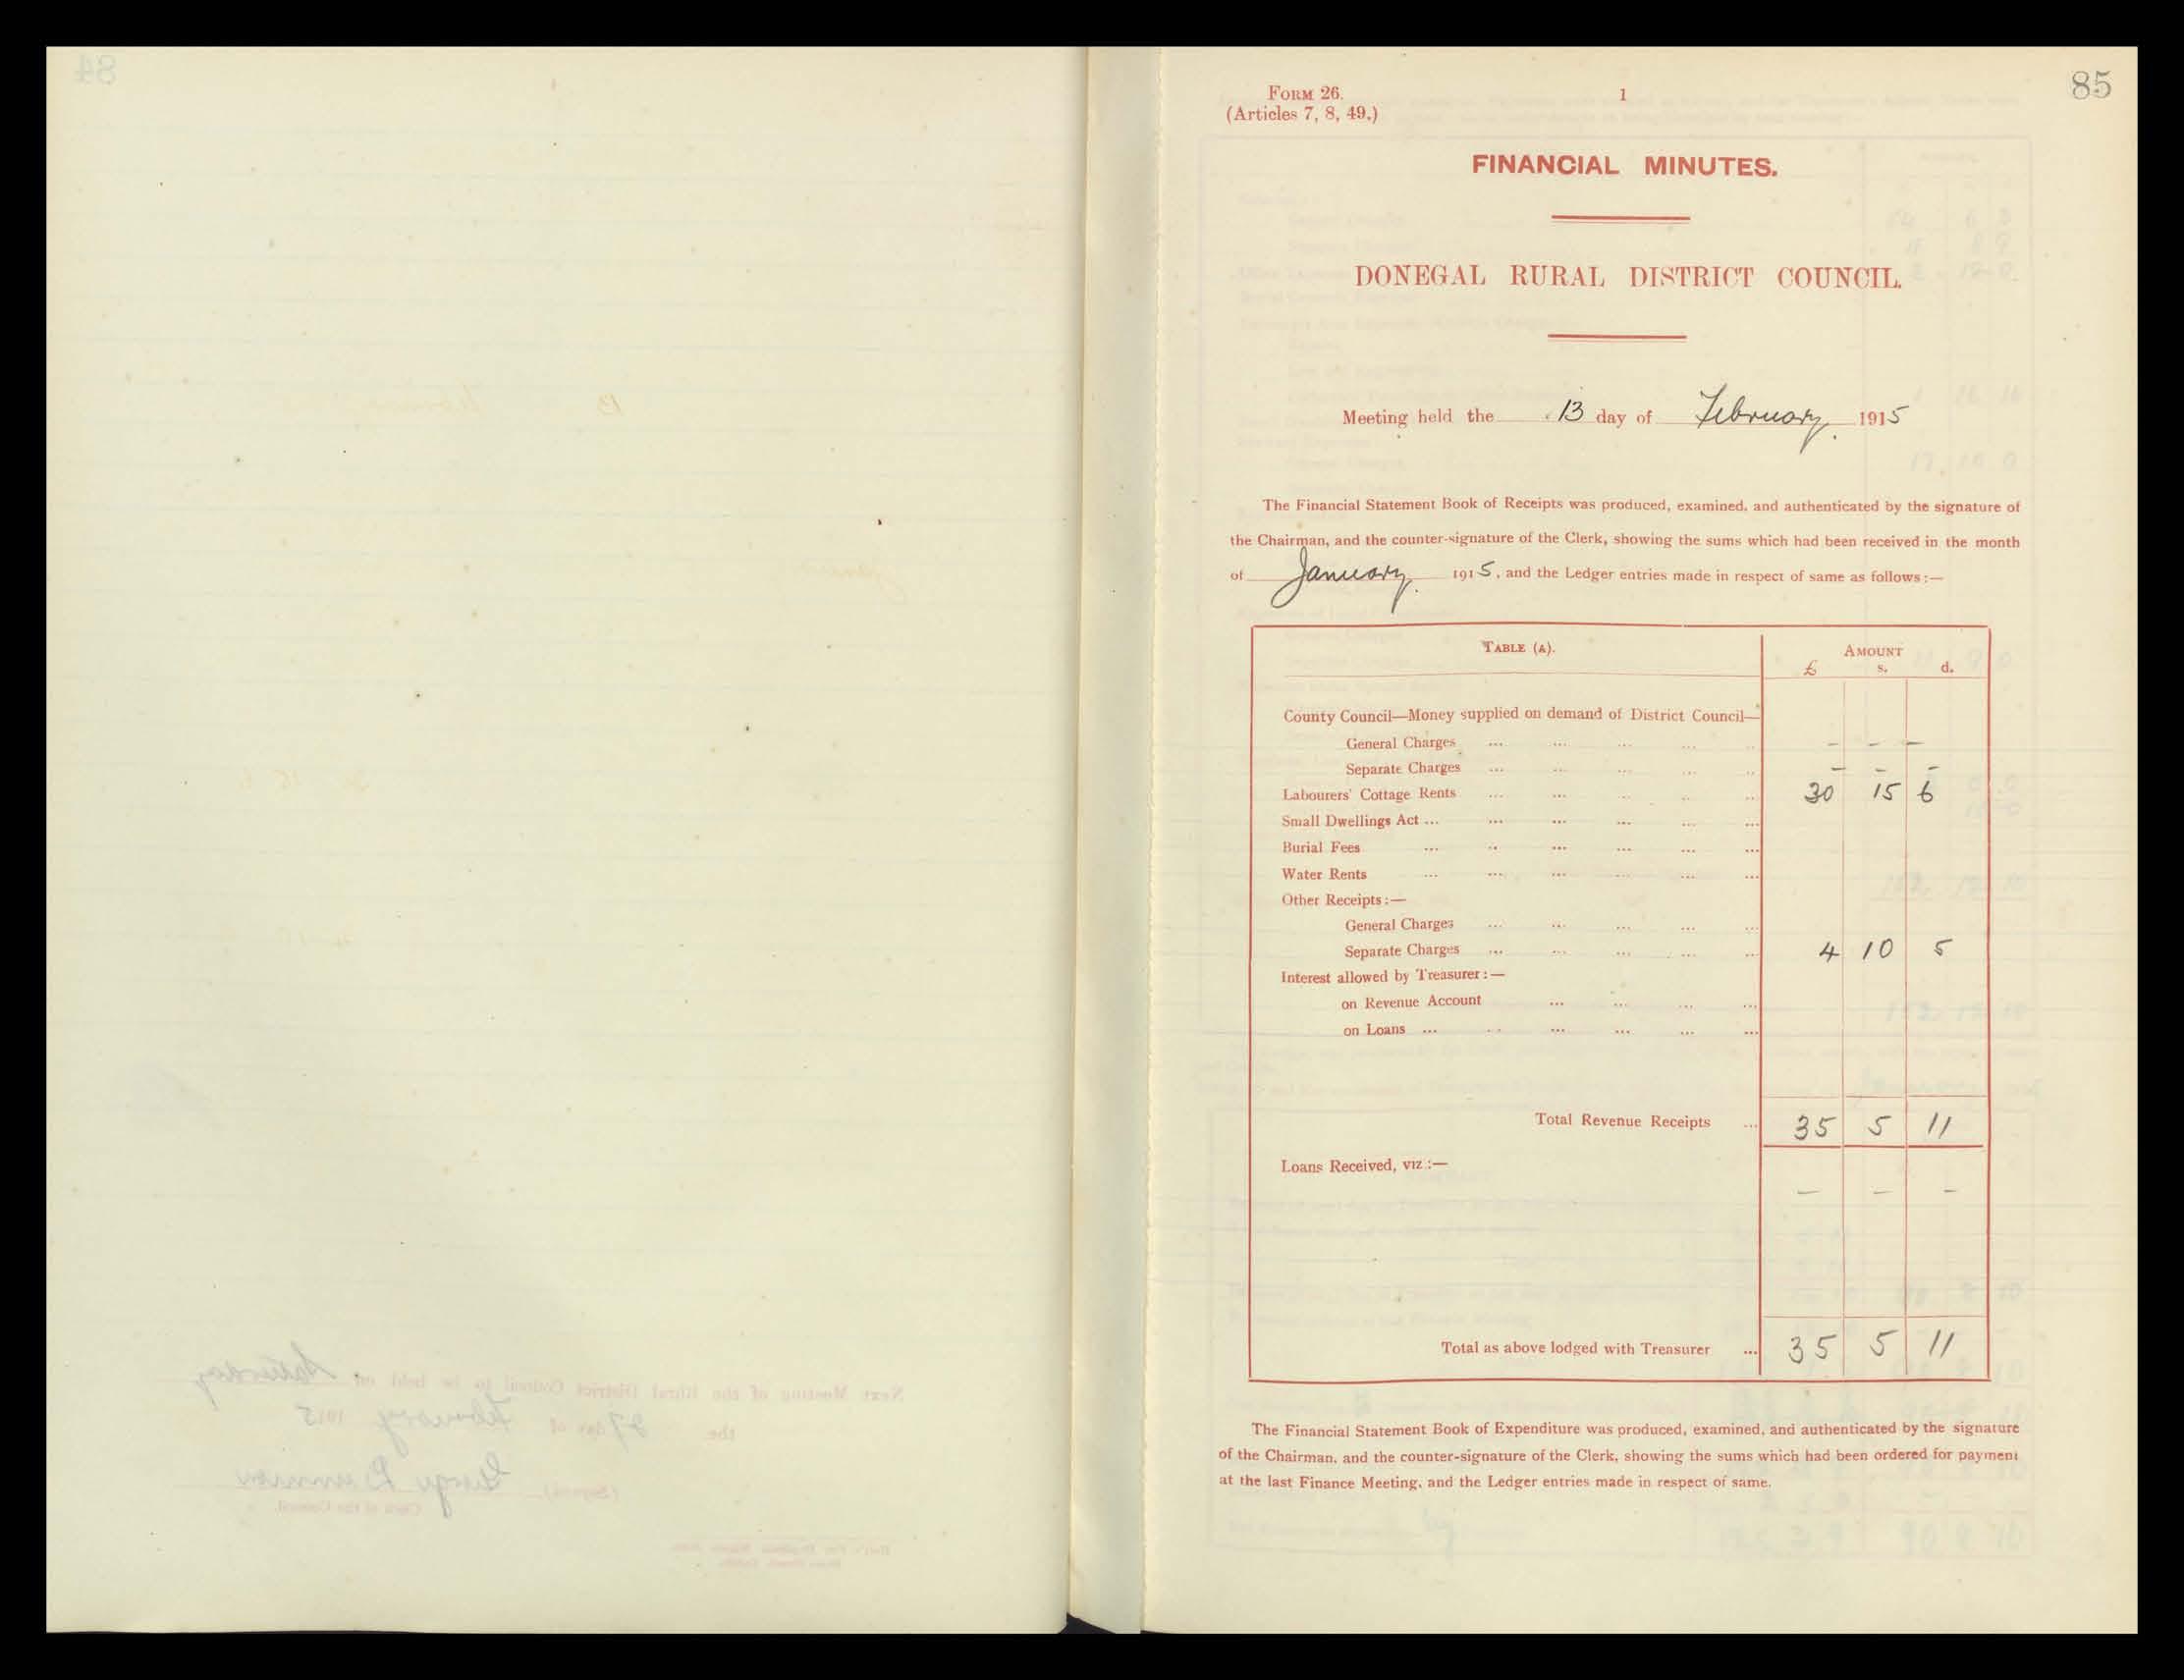 85
FORM 26.
(Articles 7, 8, 49.)
1
FINANCIAL MINUTES.
DONEGAL RURAL DISTRICT COUNCIL.
Meeting held the 13 day of February 1915
The Financial Statement Book of Receipts was produced, examined, and authenticated by the signature of
the Chairman, and the counter-signature of the Clerk, showing the sums which had been received in the month
of January 1915, and the Ledger entries made in respect of same as follows:—
TABLE (A). AMOUNT
£ s. d.
County Council—Money supplied on demand of District Council—
General Charges ... ... ... ... ... — — —
Separate Charges ... ... ... ... ... — — —
Labourers' Cottage Rents ... ... ... ... ... 30 15 6
Small Dwellings Act ... ... ... ... ... ...
Burial Fees ... ... ... ... ... ...
Water Rents ... ... ... ... ... ...
Other Receipts:—
General Charges ... ... ... ... ...
Separate Charges ... ... ... ... ... 4 10 5
Interest allowed by Treasurer:—
on Revenue Account ... ... ... ...
on Loans ... ... ... ... ... ...
Total Revenue Receipts ... 35 5 11
Loans Received, viz.:—
— — —
Total as above lodged with Treasurer ... 35 5 11
The Financial Statement Book of Expenditure was produced, examined, and authenticated by the signature
of the Chairman, and the counter-signature of the Clerk, showing the sums which had been ordered for payment
at the last Finance Meeting, and the Ledger entries made in respect of same.